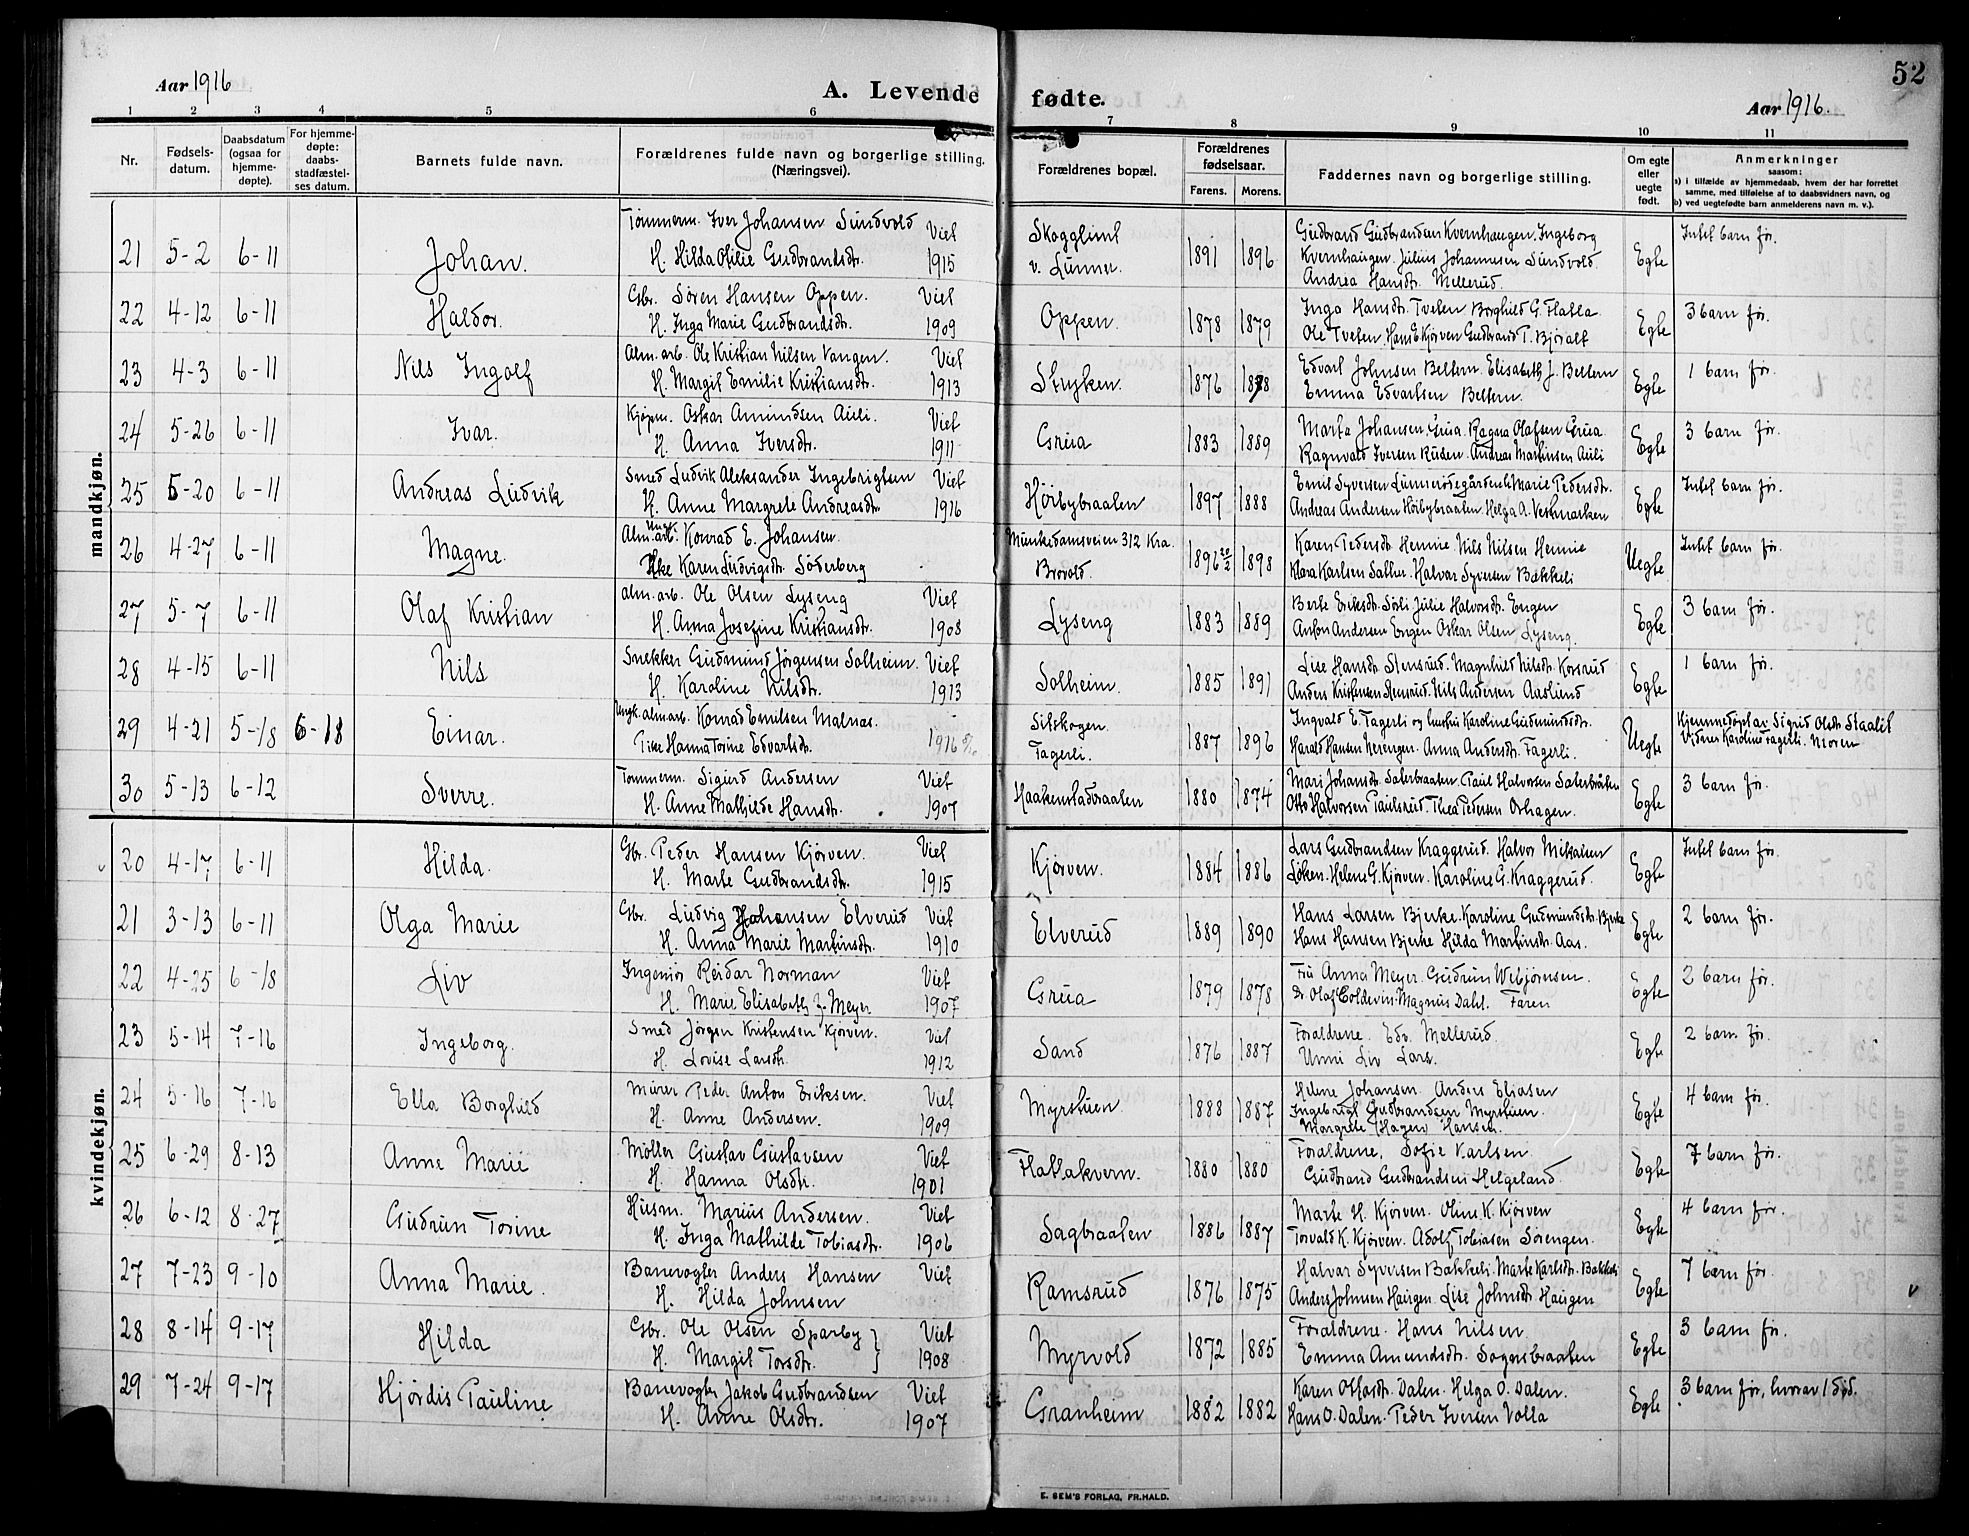 52
Aar 1916
A. Levende fødte.
Aar 1916.
1 2 3 4 5 6 7 8 9 10 11
Nr.
Fødsels-
datum.
Daabsdatum
(ogsaa for
hjemme-
døpte).
For hjemme-
døpte:
daabs-
stadfæstel-
ses datum.
Barnets fulde navn.
Forældrenes fulde navn og borgerlige stilling.
(Næringsvei).
Forældrenes bopæl.
Forældrenes
fødselsaar.
Farens. Morens.
Faddernes navn og borgerlige stilling.
Om egte
eller
uegte
født.
Anmerkninger
saasom:
a) i tilfælde av hjemmedaab, hvem der har forrettet
samme, med tilføielse af to daabsvidners navn, og
b) ved uegtefødte barn anmelderens navn m. v.).
mandkjøn.
21 5-2 6-11 Johan.
Tømmerm. Iver Johansen Sundvold Viet
H. Hilda Otilie Gudbrandsdtr. 1915
Skogglimt
v. Lunner.
1891 1896
Gudbrand Gudbrandsen Kvernhaugen. Ingeborg
Kvernhaugen. Julius Johannesen Sundvold.
Andrea Hansdtr. Mellerud.
Egte
Intet barn før.
22 4-12 6-11 Haldor.
Gbr. Søren Hansen Oppen. Viet
H. Inga Marie Gudbrandsdtr. 1909
Oppen.
1878 1879
Inga Hansdtr. Tveten Borghild G. Flatla
Ole Tveten. Hans E Kjørven Gudbrand T. Bjøralt
Egte
3 barn før.
23 4-3 6-11 Nils Ingolf
Alm. arb. Ole Kristian Nilsen Vangen. Viet
H. Margit Emilie Kristiansdtr. 1913
Stryken.
1876 1898
Edvart Johnsen Beltern. Elisabeth J. Beltern
Emma Edvartsen Beltern.
Egte
1 barn før.
24 5-26 6-11 Ivar.
Kjøpm. Oskar Amundsen Auli. Viet
H. Anna Iversdtr. 1911
Grua
1883 1889
Marta Johansen. Grua. Ragna Olafsen Grua.
Ragnvald Iversen Rusen. Andreas Martinsen Auli
Egte
3 barn før.
25 5-20 6-11 Andreas Ludvik
Smed Ludvik Aleksander Ingebrigtsen Viet
H. Anne Margrete Andreasdtr. 1916
Hørbybraaten
1897 1888
Emil Syversen Marie Pedersdtr.
Andreas Andersen Hørbybraaten. Helga A. Vestmarken
Egte
Intet barn før.
26 4-27 6-11 Magne.
Ungk. Alm. arb. Konrad E. Johansen.
Pike Karen Ludvigsdtr. Söderberg
Munkedamsveien 312 Kra.
Brovold.
1896 20/2 1898
Karen Pedersdtr. Hennie. Nils Nilsen Hennie
Klara Karlsen Sather. Halvar Syversen Bækkeli
Uegte
Intet barn før.
27 5-7 6-11 Olaf Kristian
Alm. arb. Ole Olsen Lyseng Viet
H. Anna Josefine Kristiansdtr. 1908
Lyseng
1883 1889
Berte Eriksdtr. Sørli Julie Halvorsdtr. Engen
Anton Andersen Engen Oskar Olsen Lyseng.
Egte
3 barn før.
28 4-15 6-11 Nils
Snekker Gudmund Jørgensen Solheim. Viet
H. Karoline Nilsdtr. 1913
Solheim.
1885 1891
Lise Hansdtr. Stensrud. Magnhild Nilsdtr. Korsrud
Anders Kristensen Stensrud. Nils Andersen Aaslund
Egte
1 barn før.
29 4-21 5-18 6-18 Einar.
Ungk. alm arb. Konrad Emilsen Malnas.
Pike Hanna Torine Edvartsdtr. 1916
Sitskogen.
Fagerli.
1887 1896
Ingvald E. Fagerli og hustru Karoline Gudmundsdtr.
Harald Hansen Nerengen. Anna Andersdtr. Fagerli.
Uegte
Hjemmedøpt av Sigrid Olsdtr. Staalit
Vidner Karoline Fagerli. Moren
30 5-13 6-12 Sverre.
Tømmerm. Sigurd Andersen Viet
H. Anne Mathilde Hansdtr. 1907
Haakenstadbraaten
1880 1874
Mari Johansdtr. Saterbraaten. Paul Halvorsen Saterbråten
Otto Halvorsen Paulsrud. Thea Pedersen Orhagen.
Egte
3 barn før.
kvindekjøn.
20 4-17 6-11 Hilda.
Gbr. Peder Hansen Kjørven. Viet
H. Marte Gudbrandsdtr. 1915
Kjørven.
1884 1886
Lars Gudbrandsen Kraggerud. Halvor Mikalsen
Løken. Helene G. Kjørven. Karoline G. Kraggerud.
Egte
Intet barn før.
21 3-13 6-11 Olga Marie
Gbr. Ludvig Johansen Elverud Viet
H. Anna Marie Martinsdtr. 1910
Elverud
1889 1890
Hans Larsen Bjerke. Karoline Gudmundsdtr. Bjerke
Hans Hansen Bjerke Hilda Martinsdtr. Aas.
Egte
2 barn før.
22 4-25 6-18 Liv
Ingeniør Reidar Norman Viet
H. Marie Elisabeth f. Meyer 1907
Grua
1879 1878
Fru Anna Meyer. Gudrun Webjørnsen.
Dr. Olaf Coldevin. Magnus Dahl. Faren
Egte
2 barn før.
23 5-14 7-16 Ingeborg.
Smed Jørgen Kristensen Kjørven. Viet
H. Lovise Larsdtr. 1912
Sand
1876 1887
Foraldrene. Edv. Mellerud
Unni Liv Lars.
Egte
2 barn før.
24 5-16 7-16 Ella Borghild
Murer Peder Anton Eriksen. Viet
H. Anne Andersen. 1909
Myrstuen.
1888 1887
Helene Johansen. Anders Eliasen
Ingebrigt Gudbrandsen Myrstuen.
Margrete (Hagen) Hansen.
Egte
4 barn før.
25 6-29 8-13 Anne Marie
Møller Gustav Gustavsen Viet
H. Hanna Olsdtr. 1901
Flatlakvern.
1880 1880
Foraldrene, Sofie Karlsen.
Gudbrand Gudbrandsen Helgeland.
Egte
7 barn før.
26 6-12 8-27 Gudrun Torine
Husm. Marius Andersen. Viet
H. Inga Mathilde Tobiasdtr. 1906
Sagbraaten
1886 1887
Marte H. Kjørven. Oline K. Kjørven
Torvald K. Kjørven. Adolf Tobiasen Sørengen.
Egte
4 barn før.
27 7-23 9-10 Anna Marie.
Banevogter Anders Hansen Viet
H. Hilda Johnsen
Ramsrud
1876 1875
Halvar Syversen Bakkeli. Marte Karlsdtr. Bakkeli
Anders Johnsen Haugen Lise Johnsdtr. Haugen
Egte
7 barn før.
28 8-14 9-17 Hilda
Gbr. Ole Olsen Sparby } Viet
H. Margit Torsdtr. } 1908
Myrvold
1872 1885
Foraldrene. Hans Nilsen.
Emma Amundsdtr. Sagersbraaten
Egte
3 barn før.
29 7-24 9-17 Hjørdis Pauline
Banevogter Jakob Gudbrandsen Viet
H. Anne Olsdtr. 1907
Granheim
1882 1882
Karen Ottosdtr. Dalen. Helga O. Dalen.
Hans O. Dalen. Peder Iversen Volla
Egte
3 barn før, hvorav 1 død.
E. SEM'S FORLAG, FR.HALD.